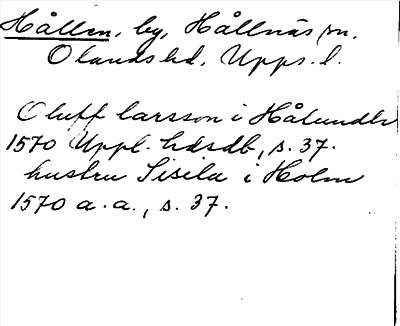 Hållen, by, Hållnäs sn,
Olands hd, Upps. l.
Oluff larsson i Hålundh
1570 Uppl. hdsdb, s. 37.
hustru Sisila i Holm
1570 a. a., s. 37.